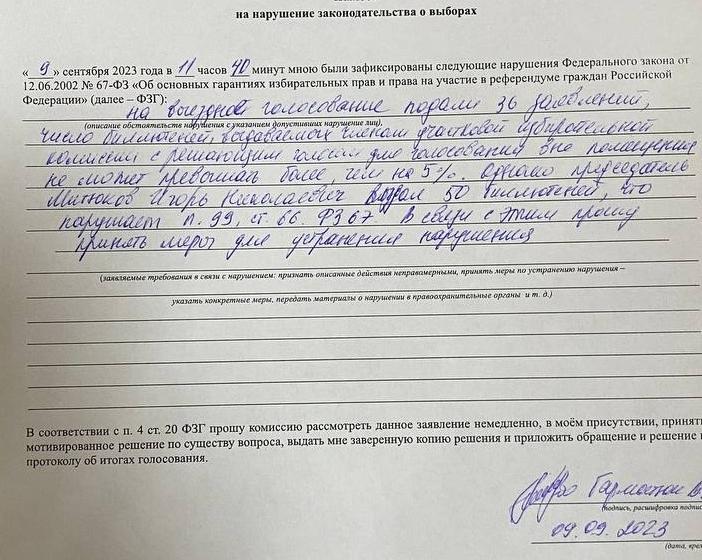 на нарушение законодательства о выборах
« 9 » сентября 2023 года в 11 часов 40 минут мною были зафиксированы следующие нарушения Федерального закона от
12.06.2002 № 67-ФЗ «Об основных гарантиях избирательных прав и права на участие в референдуме граждан Российской
Федерации» (далее – ФЗГ):
на выездное голосование подали 36 заявлений,
(описание обстоятельств нарушения с указанием допустивших нарушение лиц),
число бюллетеней, выдаваемых членам участковой избирательной
комиссии с решающим голосом для голосования вне помещения
не может превышать более, чем на 5%. Однако председатель
Митюков Игорь Николаевич выдал 50 бюллетеней, что
нарушает п. 99, ст. 66. ФЗ 67 В связи с этим прошу
принять меры для устранения нарушения
(заявляемые требования в связи с нарушением: признать описанные действия неправомерными, принять меры по устранению нарушения –
указать конкретные меры, передать материалы о нарушении в правоохранительные органы и т. д.)
В соответствии с п. 4 ст. 20 ФЗГ прошу комиссию рассмотреть данное заявление немедленно, в моём присутствии, принять
мотивированное решение по существу вопроса, выдать мне заверенную копию решения и приложить обращение и решение
протоколу об итогах голосования.
(подпись, расшифровка подписи
09.09.2023
(дата, вре